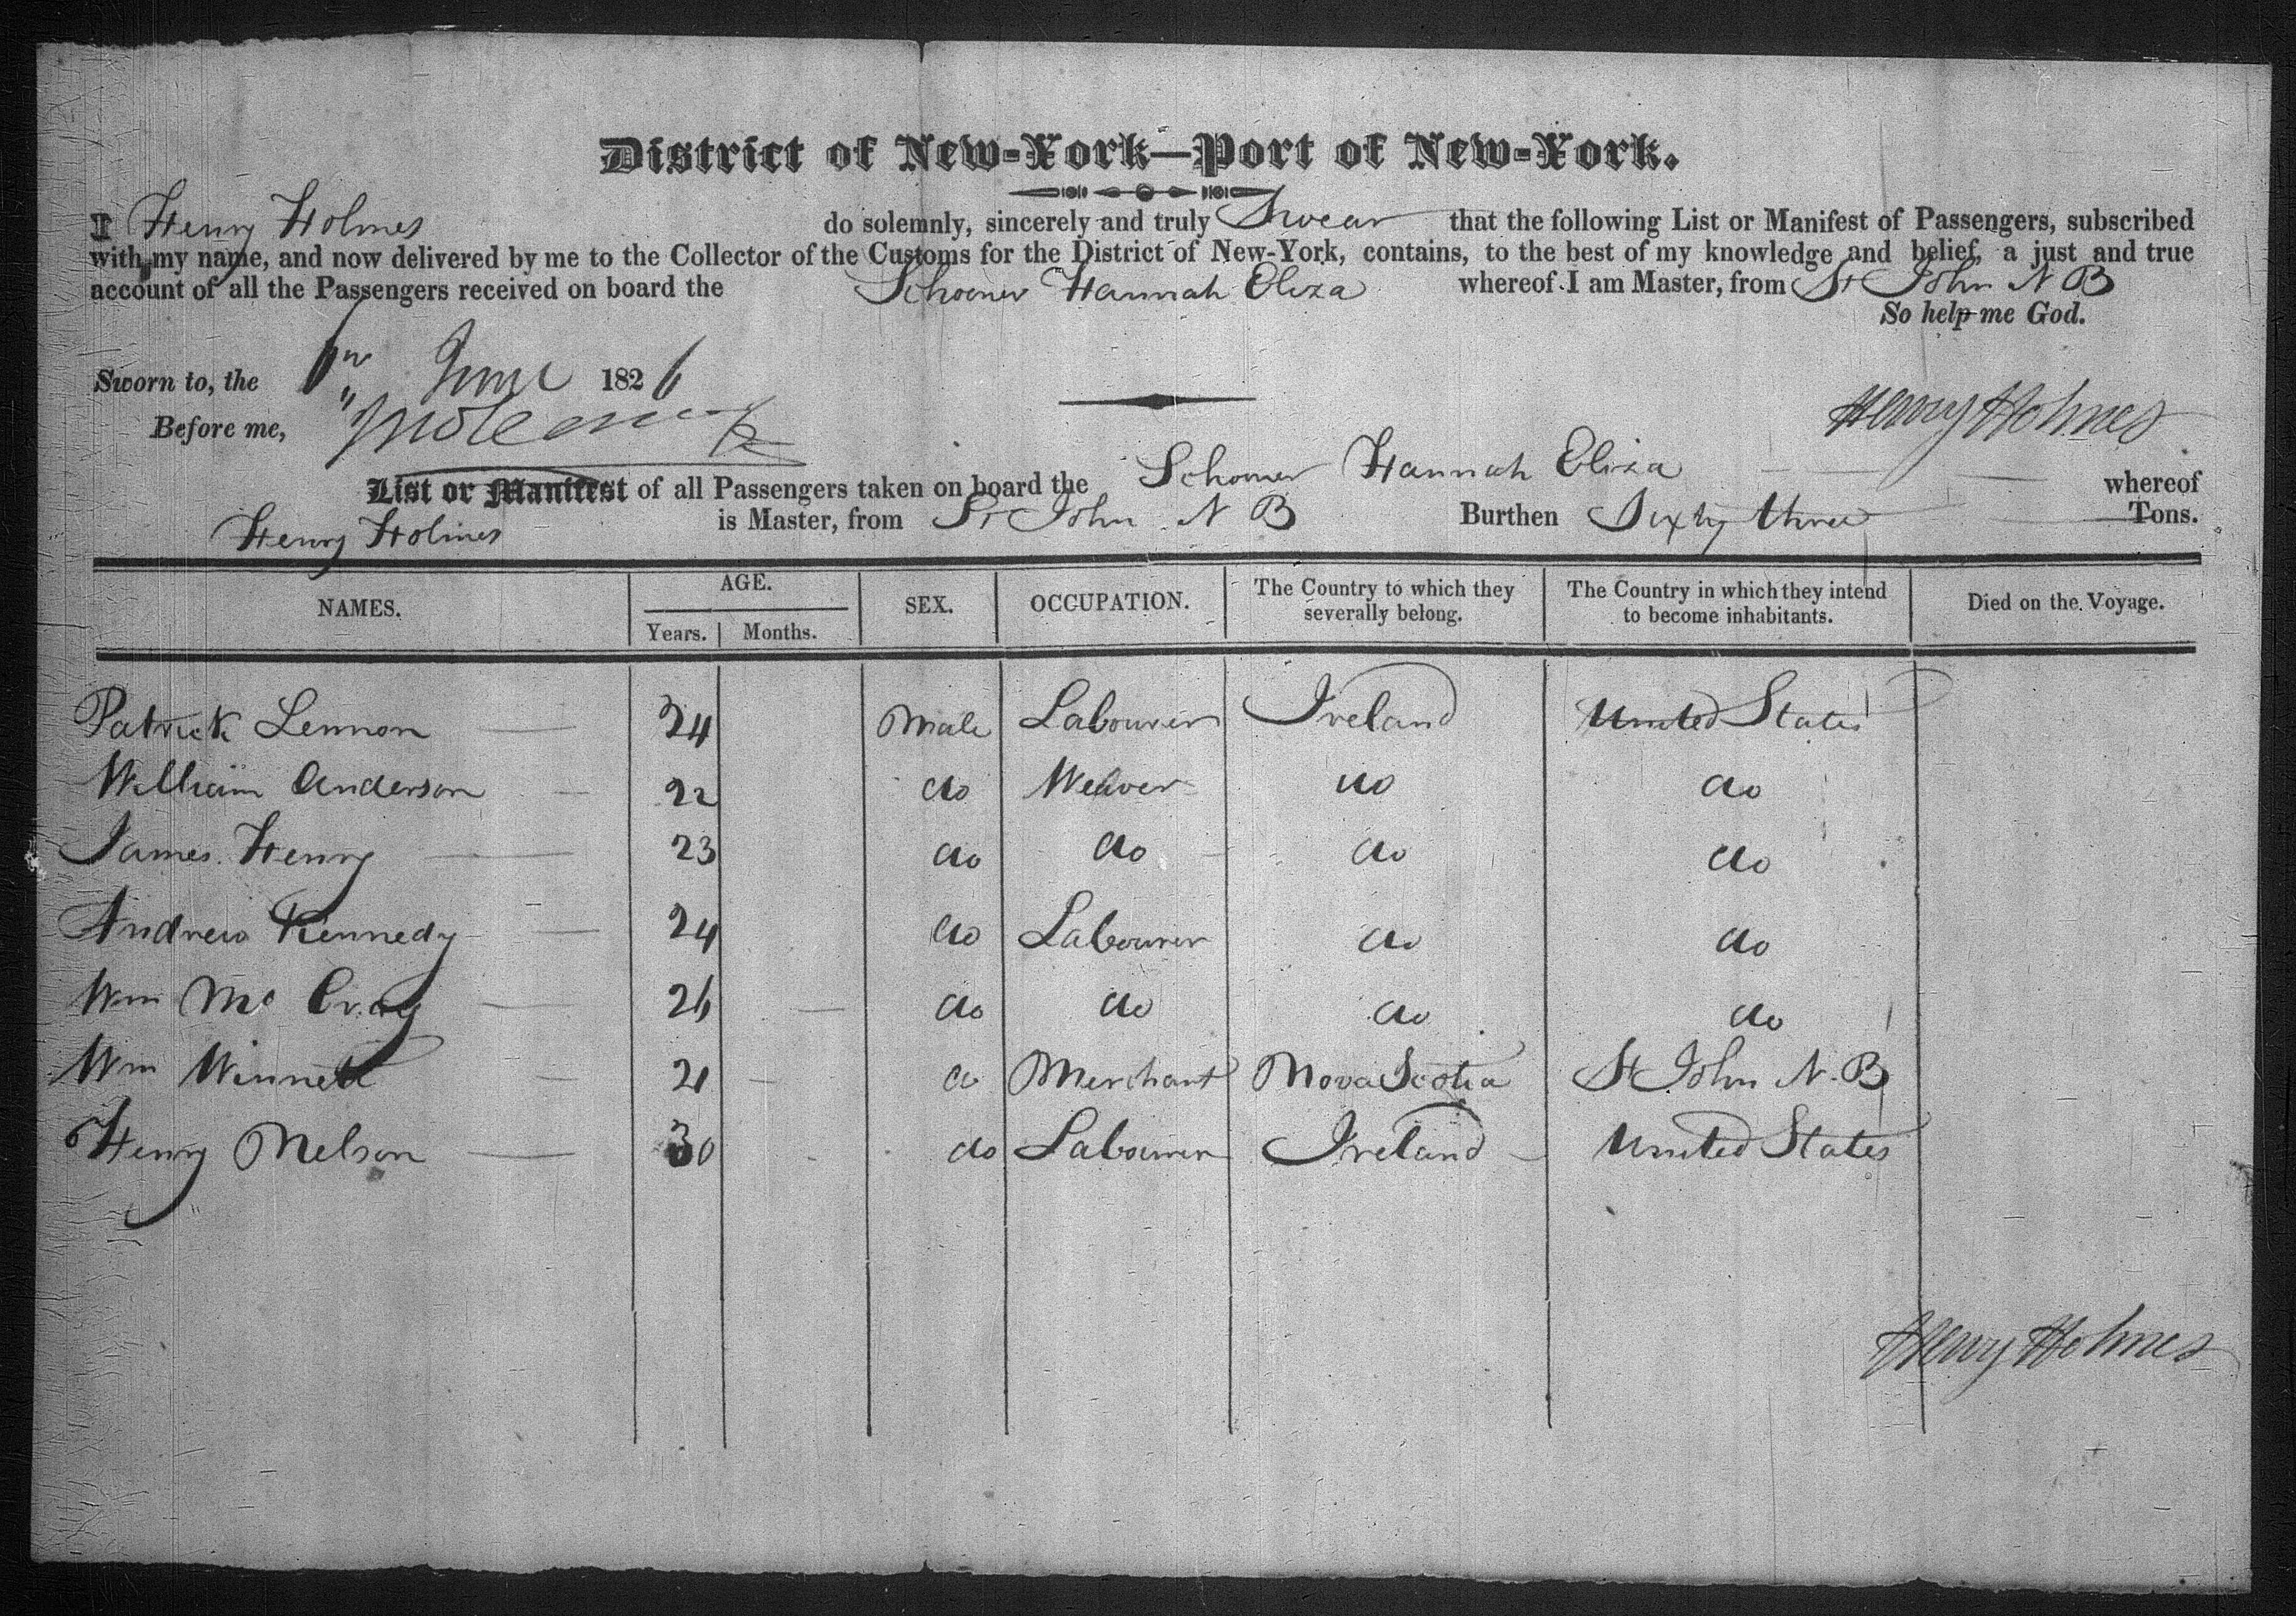 District of New-York—Port of New-York.
I Henry Holmes do solemnly, sincerely and truly Swear that the following List or Manifest of Passengers, subscribed
with my name, and now delivered by me to the Collector of the Customs for the District of New-York, contains, to the best of my knowledge and belief, a just and true
account of all the Passengers received on board the Schooner Hannah Eliza whereof I am Master, from St John N B
So help me God.
Sworn to, the June 1826
Before me,
Henry Holmes
List or Manifest of all Passengers taken on board the Schooner Hannah Eliza whereof
Henry Holmes is Master, from St John N B Burthen Sixty three Tons.
NAMES. AGE. SEX. OCCUPATION. The Country to which they severally belong. The Country in which they intend to become inhabitants. Died on the Voyage.
Years. Months.
Patrick Lennon 24 Male Labourer Ireland United States
William Anderson 22 do Weaver do do
James Henry 23 do do do do
Andrew Kennedy 24 do Labourer do do
Wm Mc Cray 26 do do do do
Wm Winnett 21 do Merchant Nova Scotia St John N. B
Henry Nelson 30 do Labourer Ireland United States
Henry Holmes